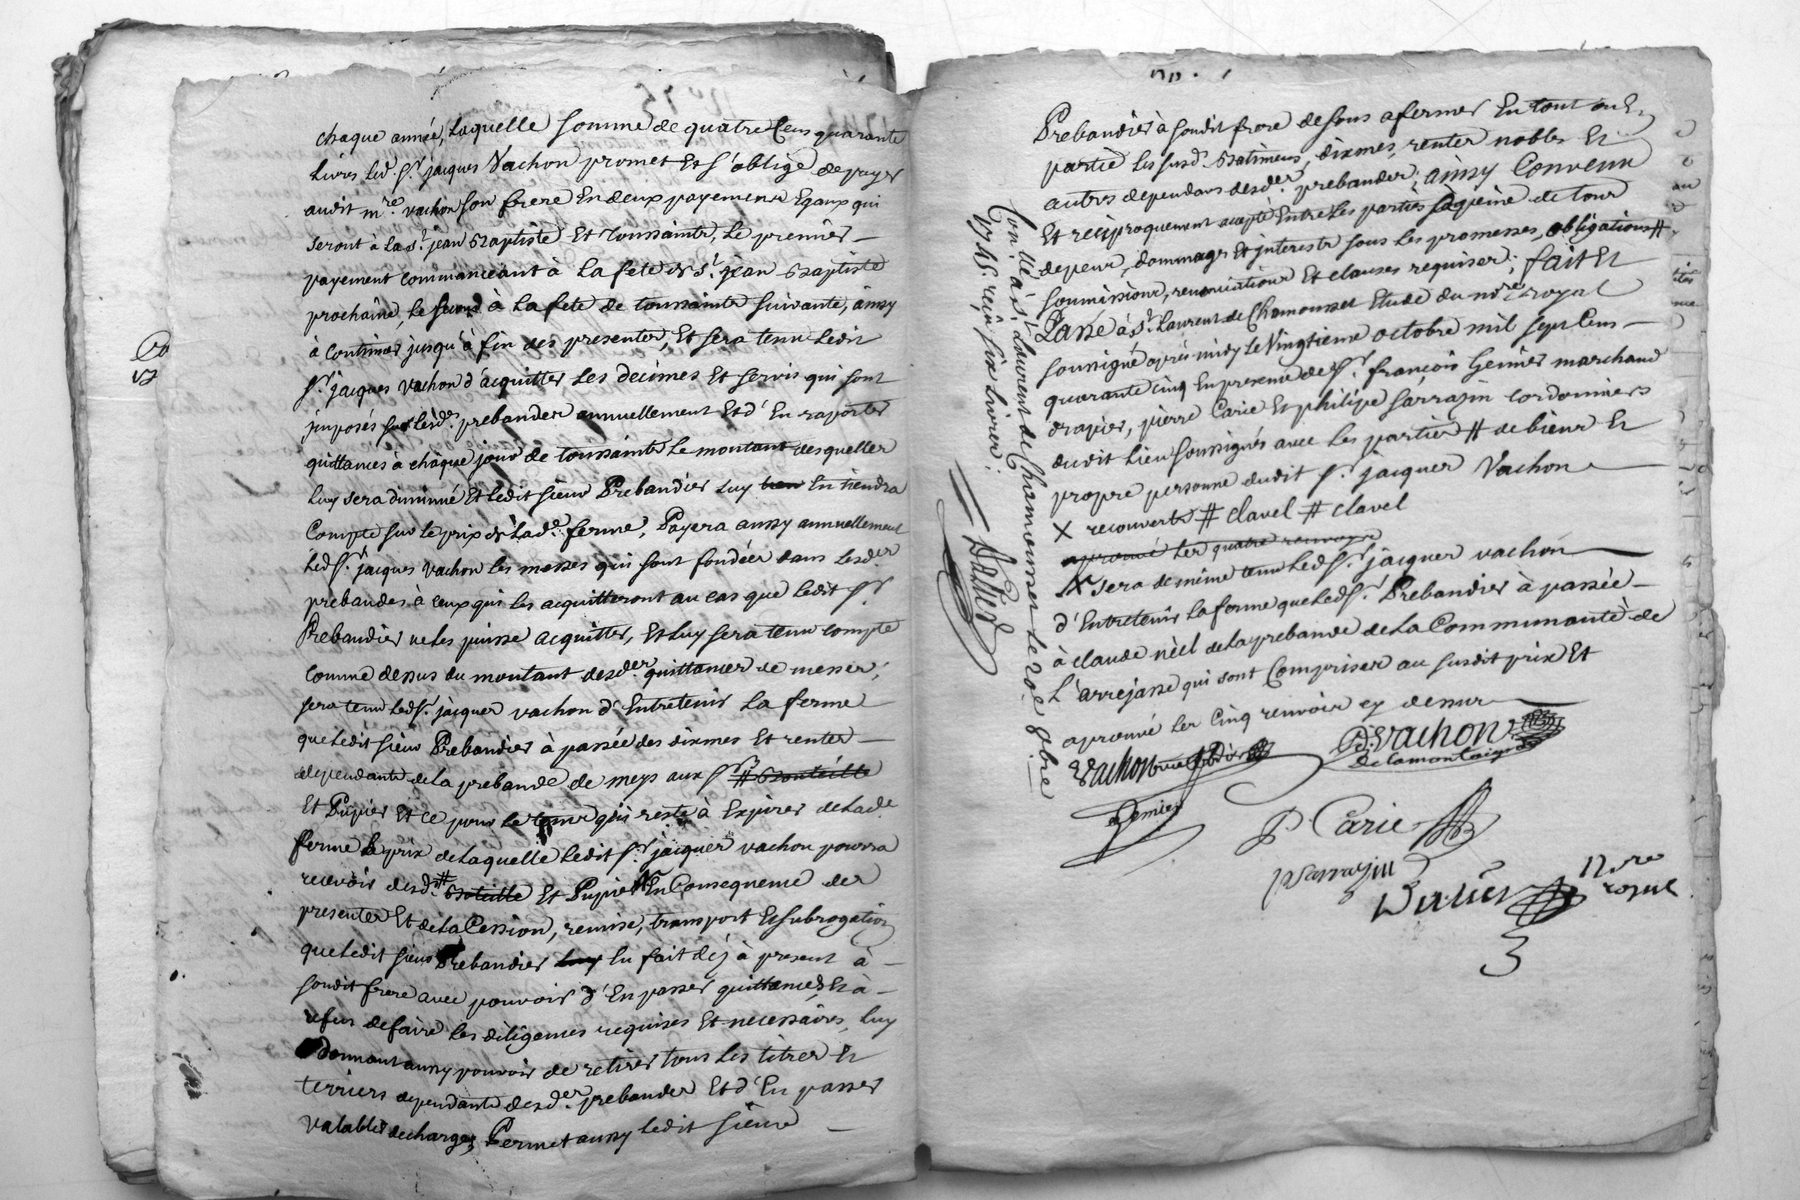 chaque année, laquelle somme de quatre Cens quarante
Livres led. Sr. jacques Vachon promet Et s'oblige de payer
audit mre. vachon son frere En deux payements Egaux qui
seront à la st. jean Baptiste Et Toussaints, Le premier —
payement commanceant à La fete de st. jean Baptiste
prochaine, Le second à La fete de toussaints suivante, ainsy
à Continuer jusqu'à fin des presentes, Et sera tenu Ledit
Sr. jacques vachon d'acquitter Les decimes Et servis qui sont
jmposés sur Lesd. prebandes annuellement Et d'En raporter
quittances à chaque jour de toussaints Le montant desquelles
Luy sera diminué Et Ledit sieur Prebandier Luy En tiendra
Compte sur Le prix de Lade. ferme, Payera aussy annuellement
Led. Sr. jacques vachon les messes qui sont fondées dans lesd.
prebandes à ceux qui les acquitteront au cas que Ledit Sr.
Prebandier ne Les puisse acquitter, Et Luy sera tenu compte
comme dessus du montant desd. quittances de messes;
sera tenu Led. Sr. jacques vachon d'Entretenir La ferme
que Ledit sieur Prebandier à passée des dixmes Et rentes —
dependants de La prebande de meys aux Srs. # Bouteille
Et Pupier Et ce pour le temps qui reste à Expirer de Lade.
ferme Le prix de Laquelle Ledit Sr. jacques vachon pourra
recevoir desd. # Boteille Et Pupier En Consequence des
presentes Et de La Cession, remise, transport Et subrogation
que Ledit sieur Prebandier Luy En fait déjà present à —
sondit frere avec pouvoir d'En passer quittances, Et à —
refus de faire Les diligences requises Et necessaires, Luy
donnant aussy pouvoir de retirer tous Les titres Et
terriers dependants desd. prebandes Et d'En passer
valables decharges, Permet aussy Ledit sieur —
Prebandier à sondit frere de sous afermer En tout ou En
partie Les susd. Batimens, dixmes, rentes nobles Et
autres dependans desdes. prebandes; ainsy Convenu
Et reciproquement accepté Entre Les parties à peine de tous
depens, dommages Et jnterests sous les promesses, obligations #
soumissions, renonciations Et clauses requises; fait Et
Passé à st. Laurent de Chamousset Etude du nore. royal
soussigné après midy Le Vingtieme octobre mil sept Cens —
quarante cinq En presence de Sr. françois Gemier marchand
drapier, pierre Carie Et philipe sarrazin cordonniers
dudit Lieu soussignés avec Les parties # de biens Et
propre personne dudit Sr. jacques Vachon —
X recouverts # clavel # clavel
aprouvé Les quatre renvoys
X sera de même tenu Led. Sr. jacques vachon —
d'Entretenir La ferme que Led. Sr. Prebandier à passée —
à claude néel de La prebande de La Communauté de
L'arrejasse qui sont Comprises au susdit prix Et
aprouvé Les Cinq renvois cy dessus —
Vachon
D: Vachon
de la montaigne
Gemier
P Carie
P Sarrazin
Nre
royal
3
Con. lé à st. Laurent de Chamousset Le 20e 8bre
1745. reçu six Livres: